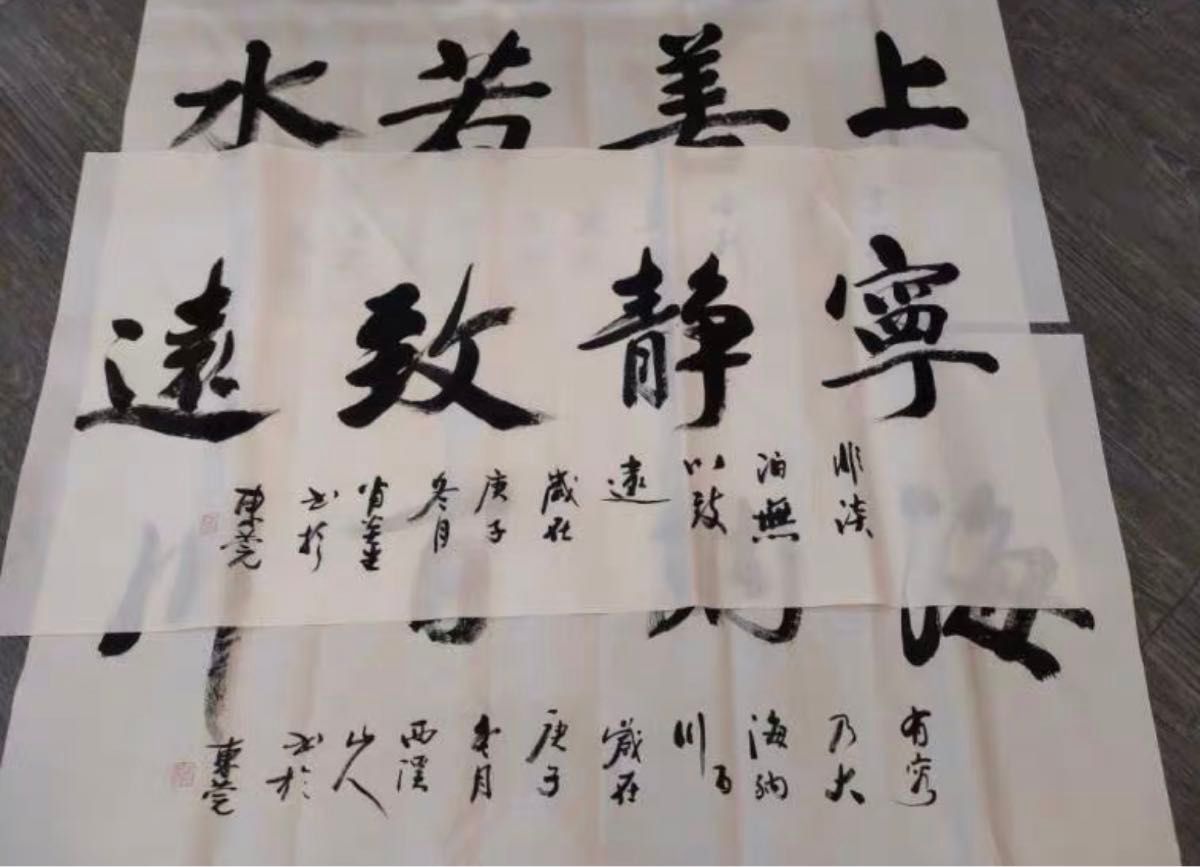 上善若水
寧静致遠
非淡
泊無
以致
遠
歲在
庚子
冬月
書於
東莞
海納百川
有容
乃大
海納
百川
歲在
庚子
冬月
西溪
山人
書於
東莞